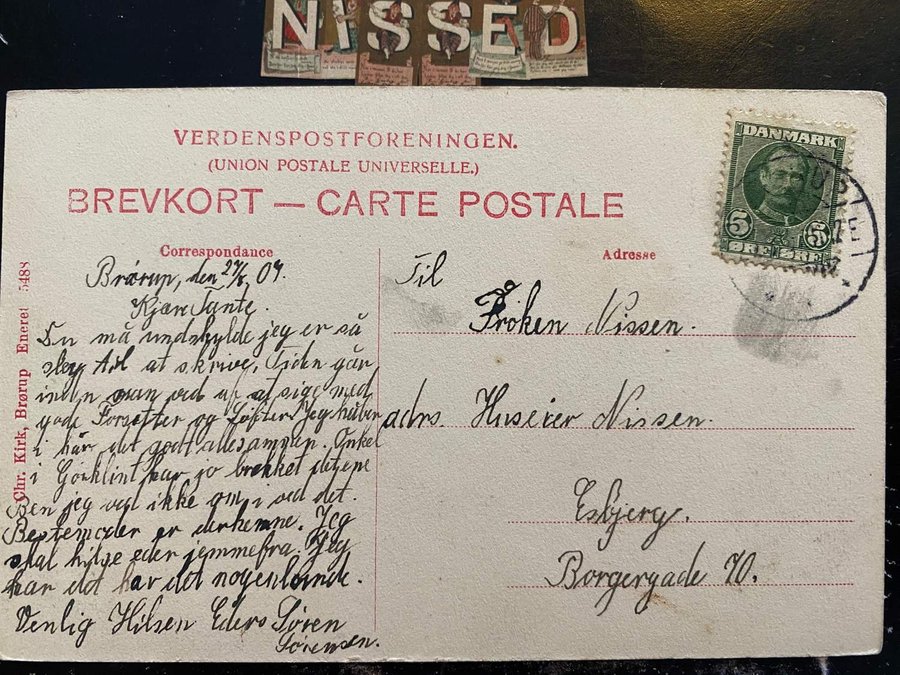 NISSED
VERDENSPOSTFORENINGEN.
(UNION POSTALE UNIVERSELLE.)
BREVKORT — CARTE POSTALE
DANMARK
5 5
ØRE ØRE
Correspondance
Adresse
Chr. Kirk, Brørup Eneret 5488
Brørup, den 27/8 09.
Kjære Tante.
Du må undskylde jeg er så
sløj til at skrive. Tiden går
inden man ved af at sige med
gode Forsætter og Løfter. Jeg håber
i har det godt allesammen. Onkel
i Görklint har jo brækket det ene
Ben jeg ved ikke om i ved det.
Bestemoder er derhenne. Jeg
skal hilse eder jemmefra. Jeg
kan det har det nogenlunde.
Venlig Hilsen Eders Søren
Sørensen.
Til
Frøken Nissen.
adrs. Huseier Nissen.
Esbjerg.
Borgergade 70.